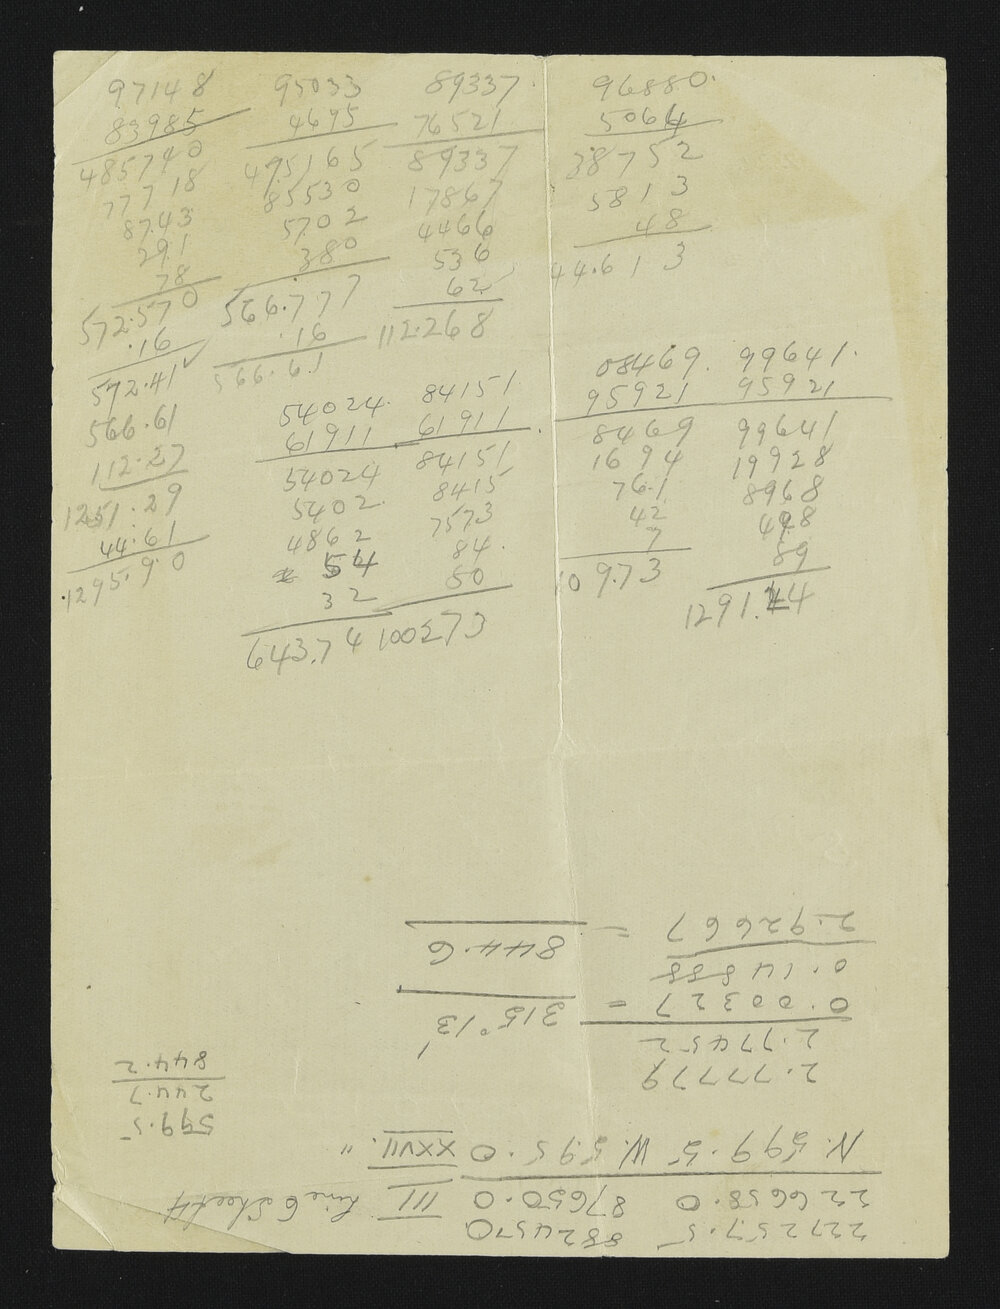 97148
83985
485740
77718
8743
291
78
572.570
.16
572.41
566.61
112.27
1251.29
44.61
1295.9.0
95033
4695
495165
85530
5702
380
566.777
.16
566.61
89337.
76521
89337
17867
4466
536
62
112.268
96880.
5064
38752
5813
48
44.613
54024.
61911
54024
5402
4862
54
32
643.74
84151
61911
84151
8415
7573
84.
80
100273
08469.
95921
8469
1694
76.1
42
7
109.73
99641.
95921
99641
19928
8968
498
89
1291.44
227257.5 882450 Line 6 Sheet 4
226658.0 87650.0 III
N. 599.5 W. 595.0 XXVII. "
599.5
244.7
844.2
2.77779
2.77452
0.00327 = 315° 13'
0.14888
2.92667 = 844.6